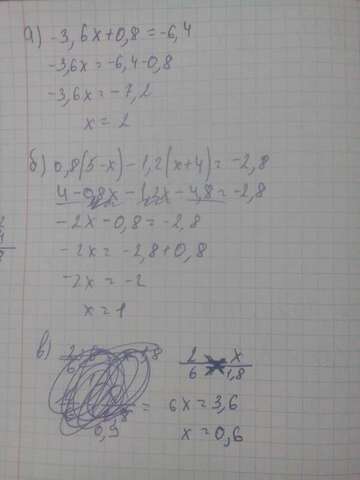 а) -3,6x+0,8=-6,4
-3,6x=-6,4-0,8
-3,6x=-7,2
x=2
б) 0,8(5-x)-1,2(x+4)=-2,8
4-0,8x-1,2x-4,8=-2,8
-2x-0,8=-2,8
-2x=-2,8+0,8
-2x=-2
x=1
в) 2 x
6 1,8
= 6x=3,6
0,9 x=0,6